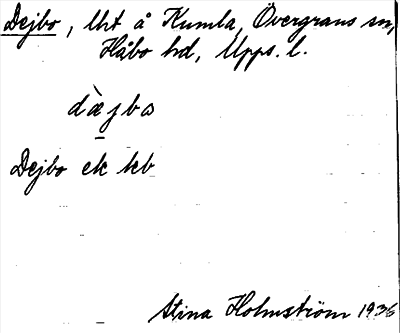 Dejbo, lht å Kumla, Övergrans sn,
Håbo hd, Upps. l.
dæ̀jbo
Dejbo ek kb
Stina Holmström 1936